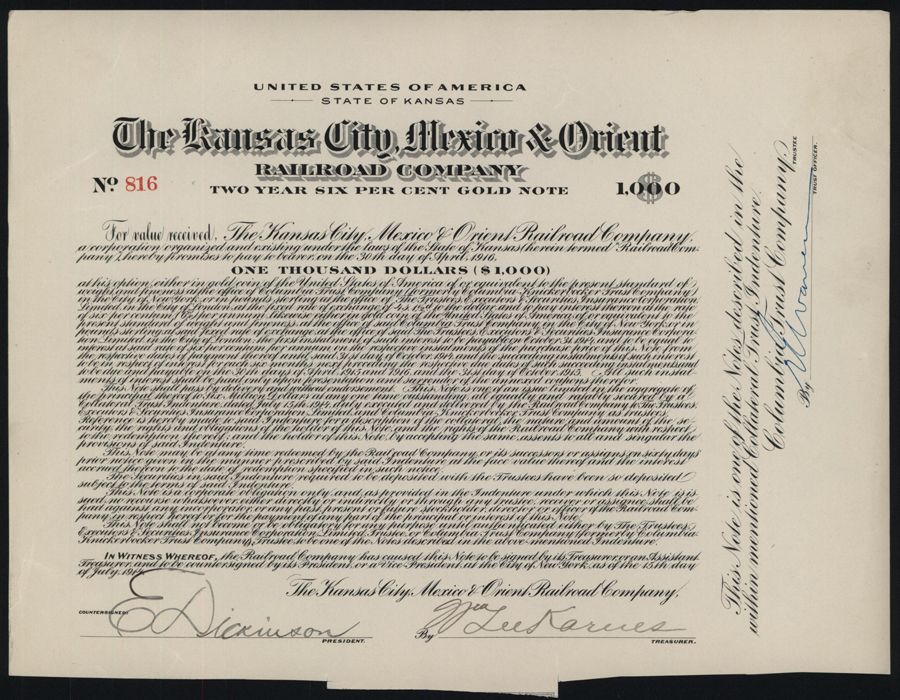 UNITED STATES OF AMERICA
STATE OF KANSAS
The Kansas City, Mexico & Orient
RAILROAD COMPANY
No 816
TWO YEAR SIX PER CENT GOLD NOTE
1,000
For value received, The Kansas City, Mexico & Orient Railroad Company,
a corporation organized and existing under the laws of the State of Kansas (herein termed "Railroad Com-
pany"), hereby promises to pay to bearer, on the 30th day of April, 1916,
ONE THOUSAND DOLLARS ($1,000)
at his option, either in gold coin of the United States of America of or equivalent to the present standard of
weight and fineness at the office of Columbia Trust Company (formerly Columbia-Knickerbocker Trust Company)
in the City of New York, or in pounds sterling at the office of The Trustees, Executors & Securities Insurance Corporation,
Limited, in the City of London, at the fixed rate of exchange of to the dollar, and to pay interest thereon at the rate
of six per centum per annum likewise either in gold coin of the United States of America of or equivalent to the
present standard of weight and fineness, at the office of said Columbia Trust Company, in the City of New York, or in
pounds sterling at said fixed rate of exchange at the office of said The Trustees, Executors & Securities Insurance Corpora-
tion, Limited, in the City of London, the first instalment of such interest to be payable October 31st 1914, and to be equal to
interest at said rate of six per centum per annum on the instalments of the purchase price of this Note from
the respective dates of payment thereof until said 31st day of October, 1914, and the succeeding instalments of such interest
to be in respect of interest for each six months next preceding the respective due dates of such succeeding instalments and
to be due and payable on the 30th days of April, 1915 and 1916, and the 31st day of October, 1915. All such instal-
ments of interest shall be paid only upon presentation and surrender of the annexed coupons therefor.
This Note shall pass by delivery and without endorsement. This Note is one of an issue limited in the aggregate of
the principal thereof to Six Million Dollars at any one time outstanding, all equally and ratably secured by a
Collateral Trust Indenture, dated July 15th, 1914, duly executed and delivered by the Railroad Company to The Trustees,
Executors & Securities Insurance Corporation, Limited, and Columbia-Knickerbocker Trust Company, as trustees.
Reference is hereby made to said Indenture for a description of the collateral, the nature and amount of the se-
curity, the rights and obligations of the holder of this Note and the rights of the Railroad Company with respect
to the redemption thereof; and the holder of this Note, by accepting the same, assents to all and singular the
provisions of said Indenture.
This Note may be at any time redeemed by the Railroad Company, or its successors or assigns, on sixty days
prior notice given in the manner prescribed by said Indenture at the face value thereof and the interest
accrued thereon to the date of redemption specified in such notice.
The Securities in said Indenture required to be deposited with the Trustees have been so deposited
subject to the terms of said Indenture.
This Note is a corporate obligation only, and, as provided in the Indenture under which this Note is is-
sued, no recourse whatsoever, either directly or indirectly, or through any trustee, receiver or assignee, shall be
had against any incorporator, or any past, present or future stockholder, director or officer of the Railroad Com-
pany in respect hereof, or for the payment of any part of the principal or interest of this Note.
This Note shall not become or be obligatory for any purpose until authenticated either by The Trustees,
Executors & Securities Insurance Corporation, Limited, Trustee, or Columbia Trust Company (formerly Columbia-
Knickerbocker Trust Company), Trustee, to be one of the Notes described in the above-mentioned Indenture.
IN WITNESS WHEREOF, the Railroad Company has caused this Note to be signed by its Treasurer or an Assistant
Treasurer, and to be countersigned by its President, or a Vice-President, at the City of New York, as of the 15th day
of July, 1914.
The Kansas City, Mexico & Orient Railroad Company,
COUNTERSIGNED:
E Dickinson
PRESIDENT.
By Wm Lee Karnes
TREASURER.
This Note is one of the Notes described in the
within mentioned Collateral Trust Indenture.
Columbia Trust Company,
TRUSTEE
By
TRUST OFFICER.